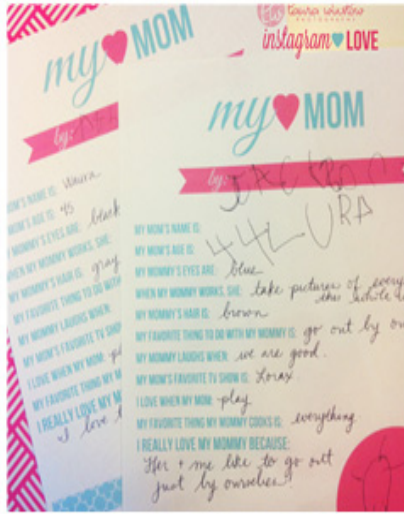 laura winslow
PHOTOGRAPHY
instagram LOVE
my MOM
by:
MOM'S NAME IS: Waura
MOM'S AGE IS: 45
MOMMY'S EYES ARE: black
WHEN MY MOMMY WORKS, SHE:
MY MOMMY'S HAIR IS: gray
MY FAVORITE THING TO DO WITH
MY MOMMY LAUGHS WHEN:
MY MOM'S FAVORITE TV SHOW
I LOVE WHEN MY MOM:
MY FAVORITE THING MY M
I REALLY LOVE MY M
I love
my MOM
by: JACKSON
MY MOM'S NAME IS: LAURA
MY MOM'S AGE IS: 44
MY MOMMY'S EYES ARE: blue
WHEN MY MOMMY WORKS, SHE: take pictures of every
the whole
MY MOMMY'S HAIR IS: brown
MY FAVORITE THING TO DO WITH MY MOMMY IS: go out by ou
MY MOMMY LAUGHS WHEN: we are good.
MY MOM'S FAVORITE TV SHOW IS: Lorax
I LOVE WHEN MY MOM: play
MY FAVORITE THING MY MOMMY COOKS IS: everything
I REALLY LOVE MY MOMMY BECAUSE:
Her + me like to go out
just by ourselves!